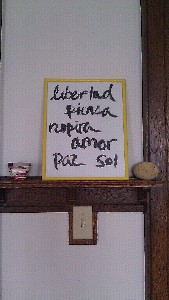 libertad
fuerza
respira
amor
paz sol